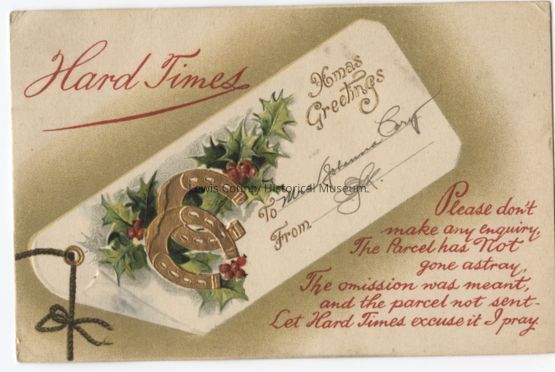 Hard Times
Xmas
Greetings
To Mrs Johanna
From
Lewis County Historical Museum
Please don't
make any enquiry,
The Parcel has Not
gone astray,
The omission was meant,
and the parcel not sent-
Let Hard Times excuse it I pray.